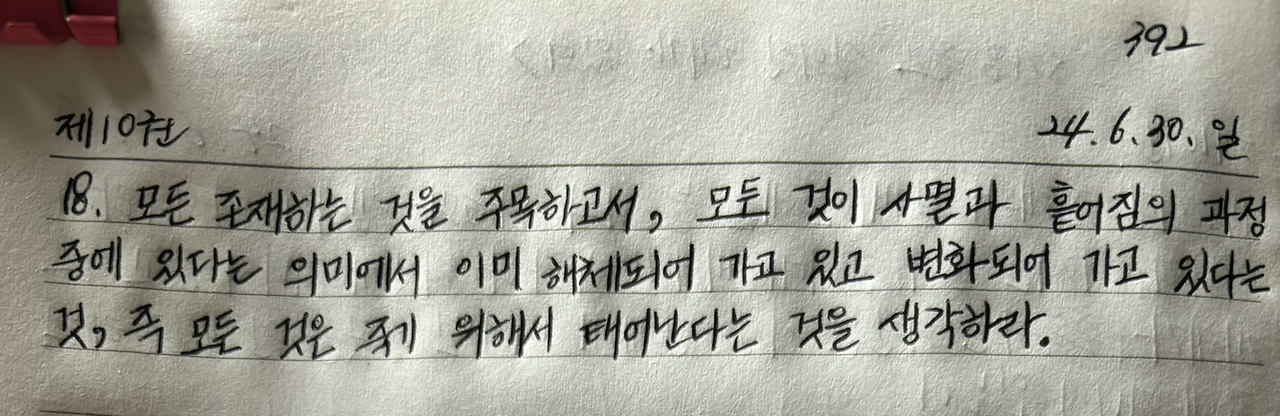 392
제10권
24.6.30. 일
18. 모든 존재하는 것을 주목하고서, 모든 것이 사멸과 흩어짐의 과정
중에 있다는 의미에서 이미 해체되어 가고 있고 변화되어 가고 있다는
것, 즉 모든 것은 죽기 위해서 태어난다는 것을 생각하라.